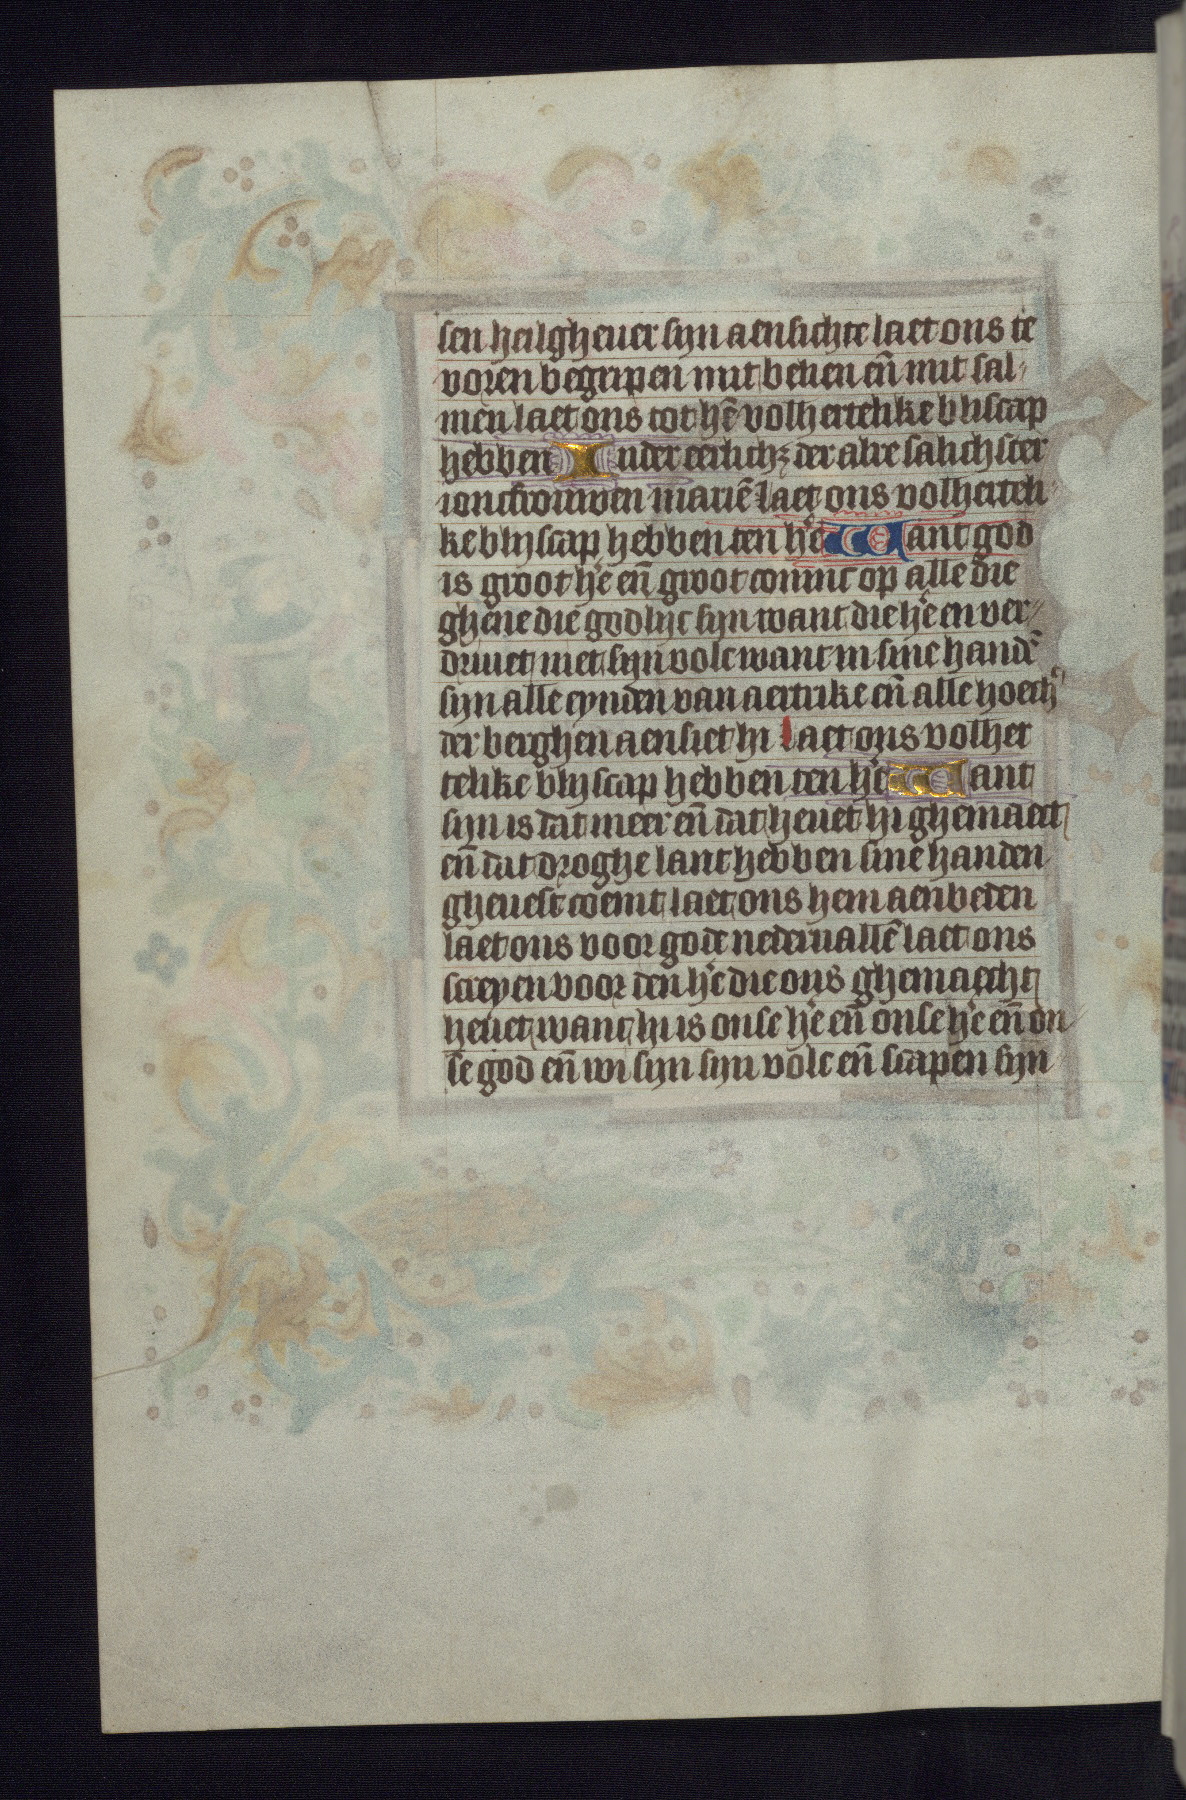 sen heilgheuer syn aensichte laet ons te
voren begripen mit belien en̄ mit sal-
men laet ons tot hē volhertelike bliscap
hebben In der eerlichz der alre salichster
ioncfrouwen mariē laet ons volherteli
ke blyscap hebben ten he͛ Want god
is groot he͛ en̄ groot coninc op alle die
ghene die godlijc syn want die he͛ en ver-
driuet niet syn volc want in sine handē
syn alle eynden van aertrike en̄ alle hoech
der berghen aensiet hi laet ons volher
telike blyscap hebben ten he͛ Want
syn is dat meer en̄ dat heuet hi ghemaect
en̄ dat droghe lant hebben sine handen
gheuest coemt laet ons hem aenbeden
laet ons voor gode nederuallē laet ons
screyen voor den he͛ die ons ghemaecht
heuet want hi is onse he͛ en̄ onse he͛ en̄ on
se god en̄ wi syn syn volc en̄ scapen syn